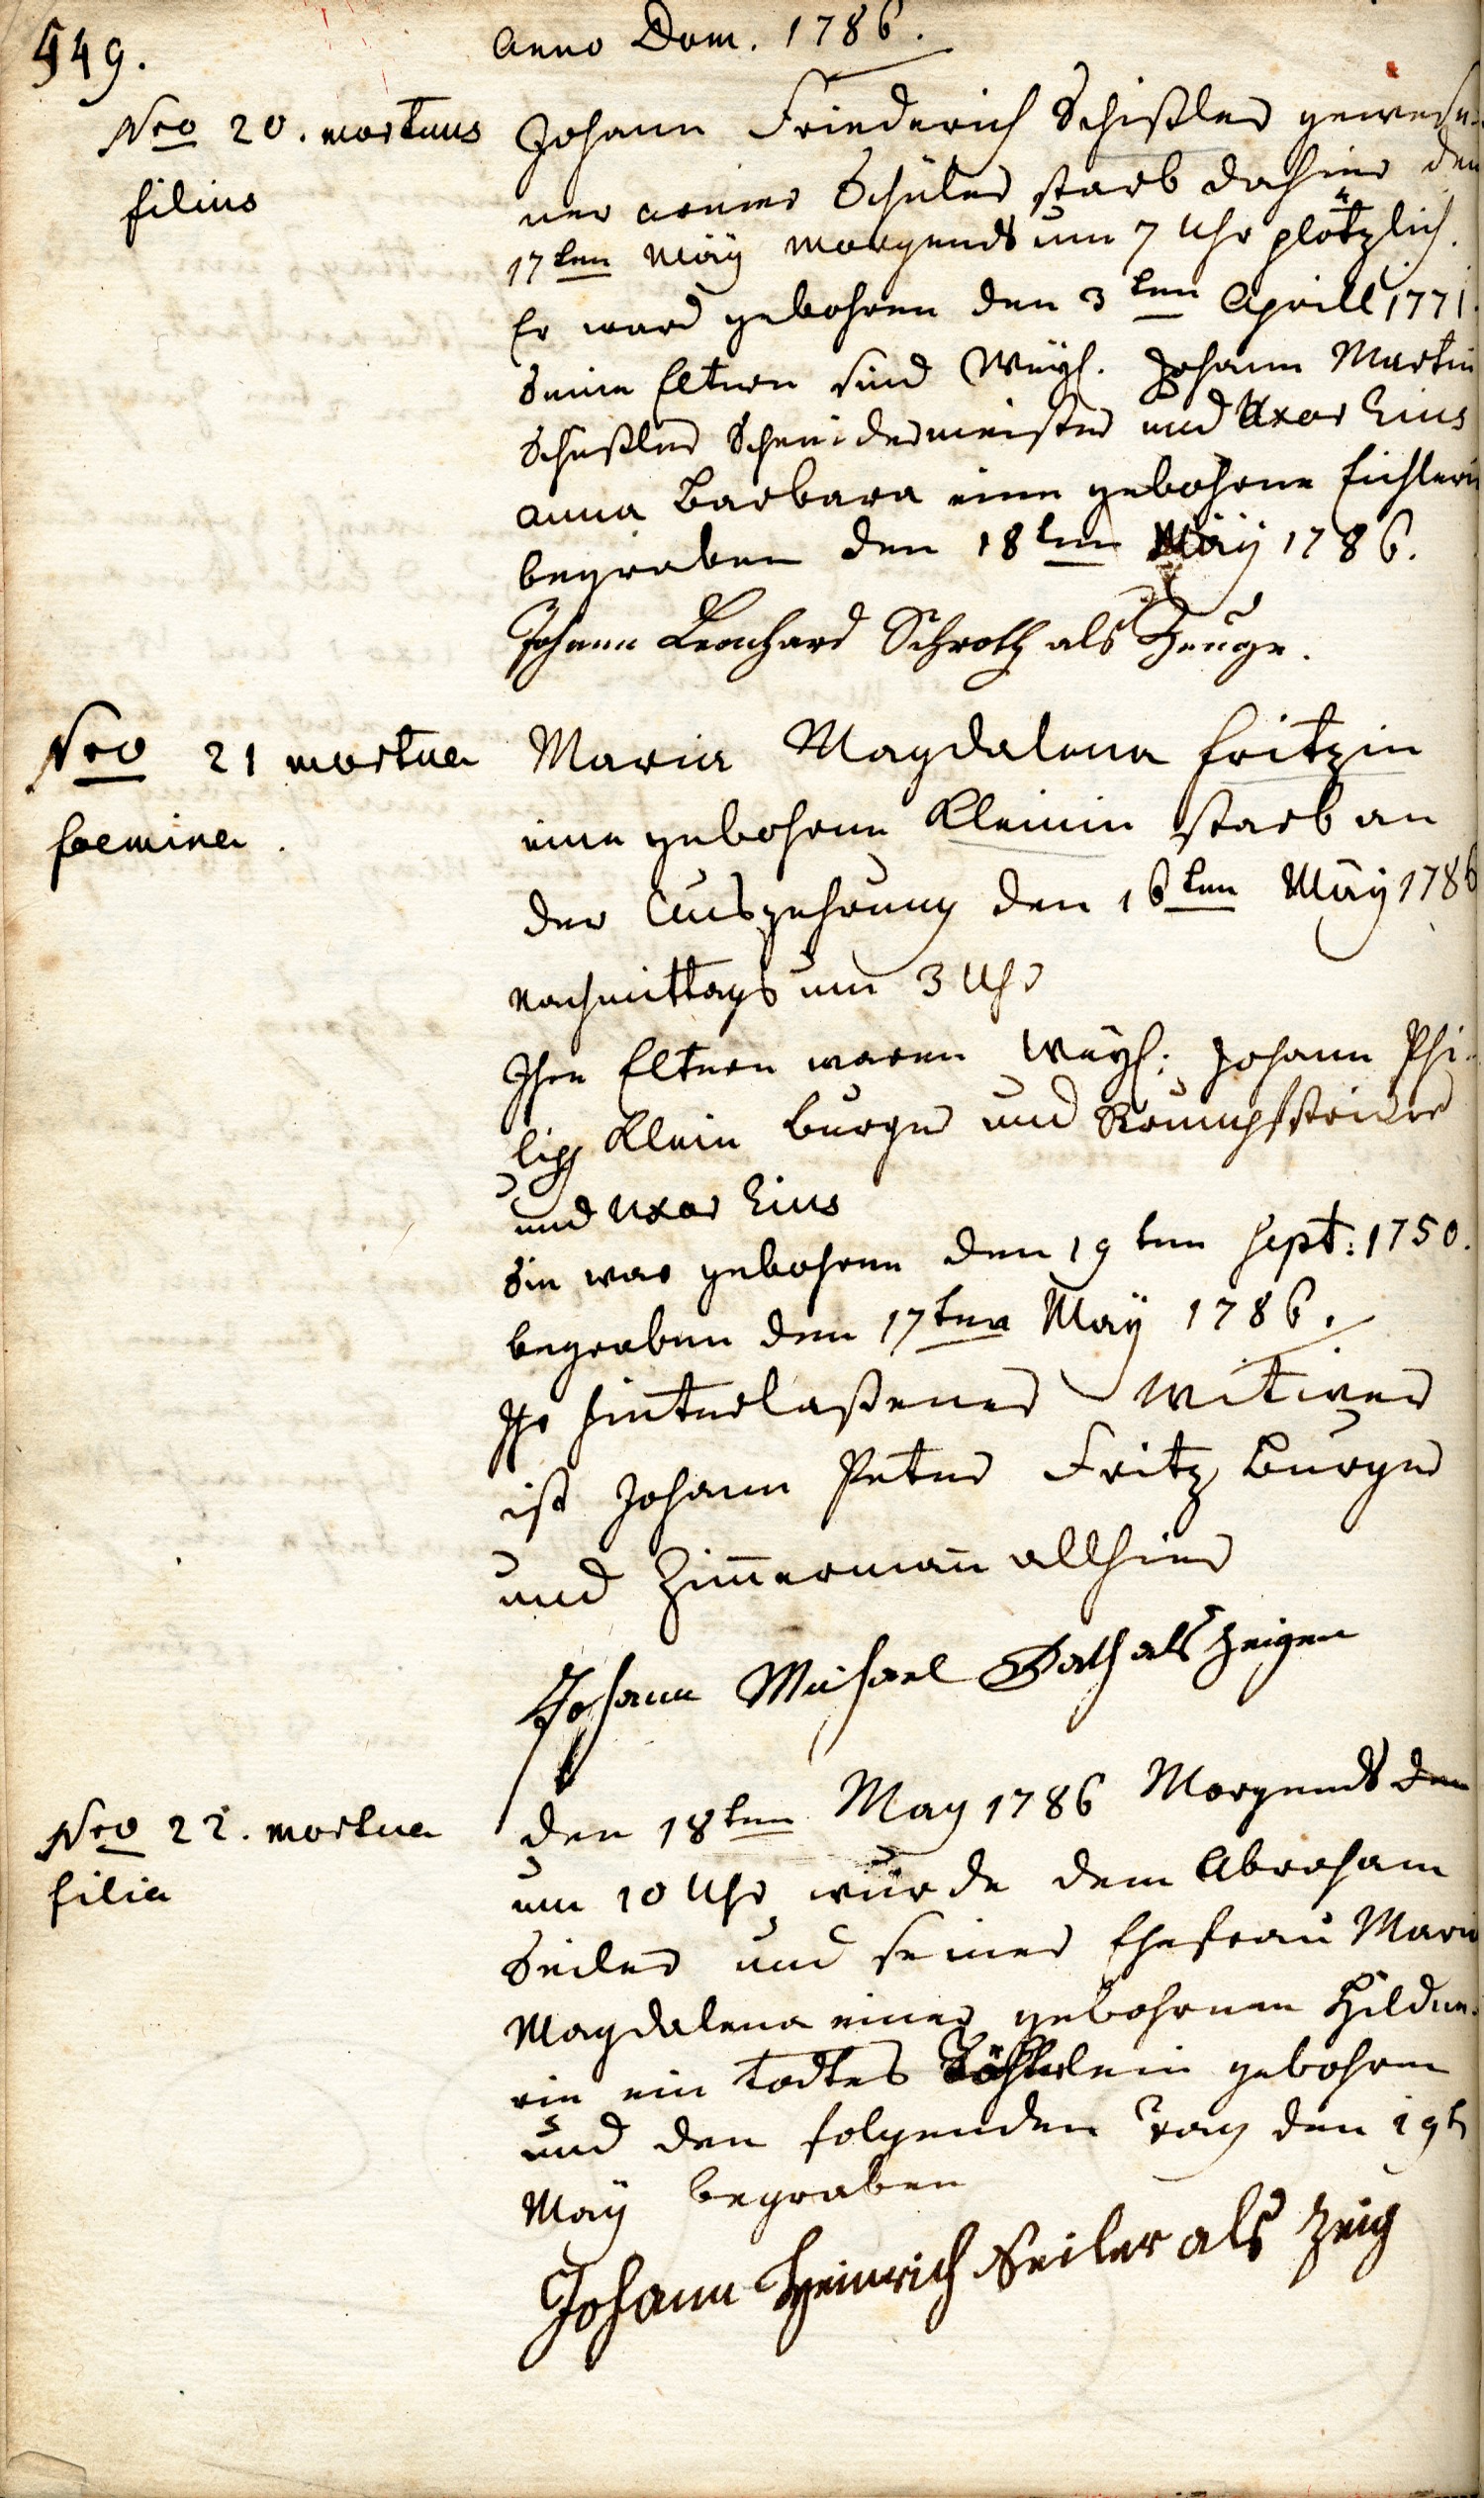 549.
Anno Dom. 1786.
Nro 20. mortuus
filius
Johann Friederich Schißler gewese-
ner armer Schüler starb dahier den
17ten Maÿ morgends um 7 Uhr plötzlich.
Er ward gebohren den 3ten Aprill 1771.
Seine Eltern sind Weyl. Johann Martin
Schißler Schneidermeister und Uxor Eius
Anna Barbara eine gebohrne Eichlerin
begraben den 18ten Maÿ 1786.
Johann Leonhard Schroth als Zeuge.
Nro 21 mortua
foemina.
Maria Magdalena Fritzin
eine gebohrne Kleinin starb an
der Auszehrung den 16ten Maÿ 1786
nachmittags um 3 Uhr
Ihre Eltern waren Weÿl: Johann Phi-
lipp Klein Burger und Strumpfstricker
und Uxor Eius
Sie war gebohren den 19ten Sept: 1750.
begraben den 17ten Maÿ 1786.
Ihr hinterlaßener Witwer
ist Johann Peter Fritz Burger
und Zim̄erman̄ allhier
Johann Michael Bath als Zeigen
Nro 22. mortua
filia
den 18ten May 1786 Morgends den
um 10 Uhr wurde dem Abraham
Seiler und seiner Ehefrau Maria
Magdalena einer gebohrnen Hildne-
rin ein todtes Töchterlein gebohren
und den folgenden Tag den 19t
Maÿ begraben
Johann Heinrich Seiler als Zeig